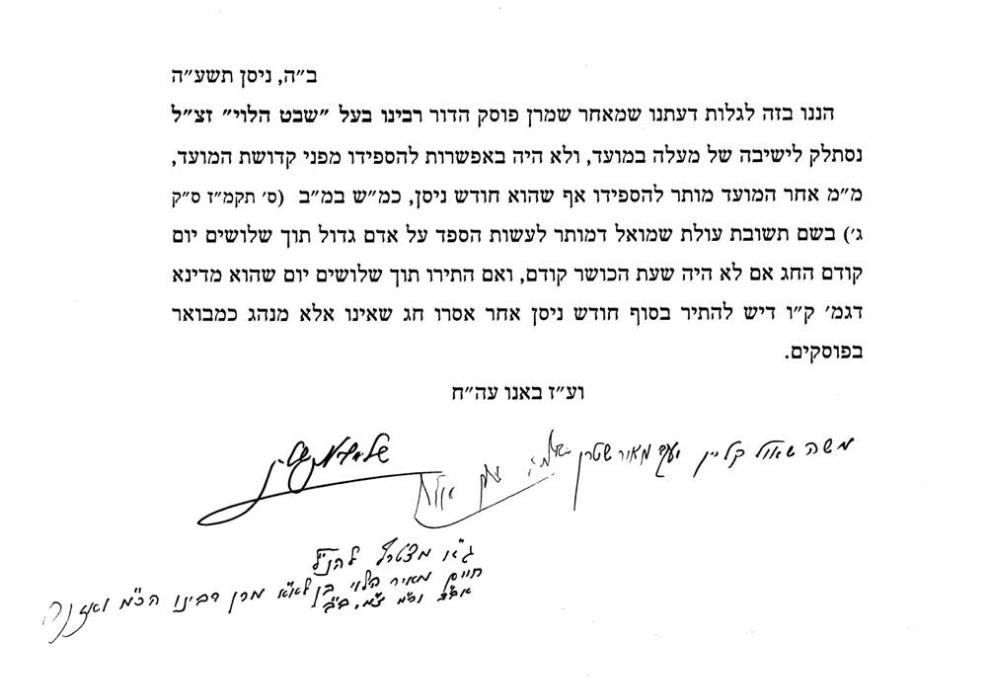 ב״ה, ניסן תשע״ה
הננו בזה לגלות דעתנו שמאחר שמרן פוסק הדור רבינו בעל ״שבט הלוי״ זצ״ל
נסתלק לישיבה של מעלה במועד, ולא היה באפשרות להספידו מפני קדושת המועד,
מ״מ אחר המועד מותר להספידו אף שהוא חודש ניסן, כמ״ש במ״ב (ס׳ תקמ״ז ס״ק
ג׳) בשם תשובת עולת שמואל דמותר לעשות הספד על אדם גדול תוך שלושים יום
קודם החג אם לא היה שעת הכושר קודם, ואם התירו תוך שלושים יום שהוא מדינא
דגמ׳ ק״ו דיש להתיר בסוף חודש ניסן אחר אסרו חג שאינו אלא מנהג כמבואר
בפוסקים.
וע״ז באנו עה״ח
משה שאול קליין מאיר שטרן
ג״א מצטרף להנ״ל
חיים מאיר הלוי בן לאא״מ מרן רבינו הכ״מ